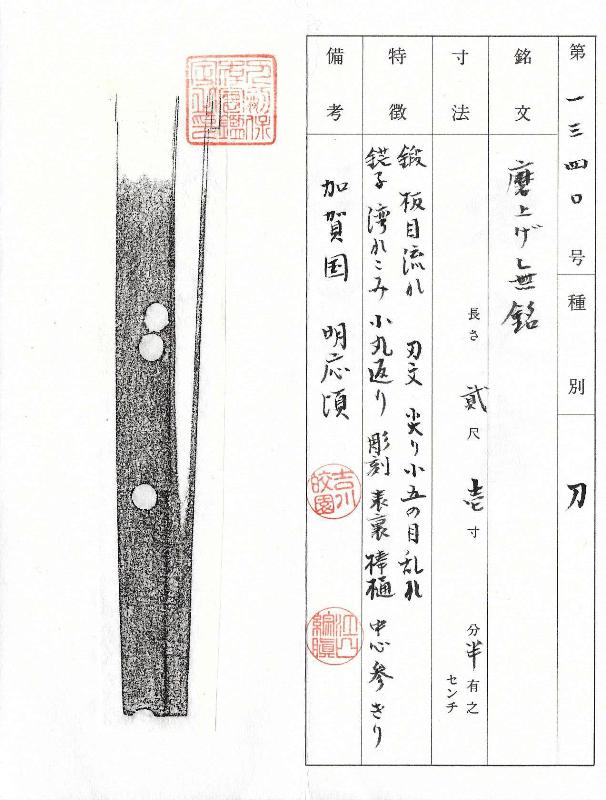 第一三四〇号 種別 刀
銘文 磨上げ無銘
寸法 長さ 貳尺 壱寸 分半有之
センチ
特徴 鍛 板目流れ 刃文 尖り小五の目乱れ
鋩子 湾れこみ小丸返り 彫刻 表裏棒樋 中心 参きり
備考 加賀国 明応頃
吉川皎園